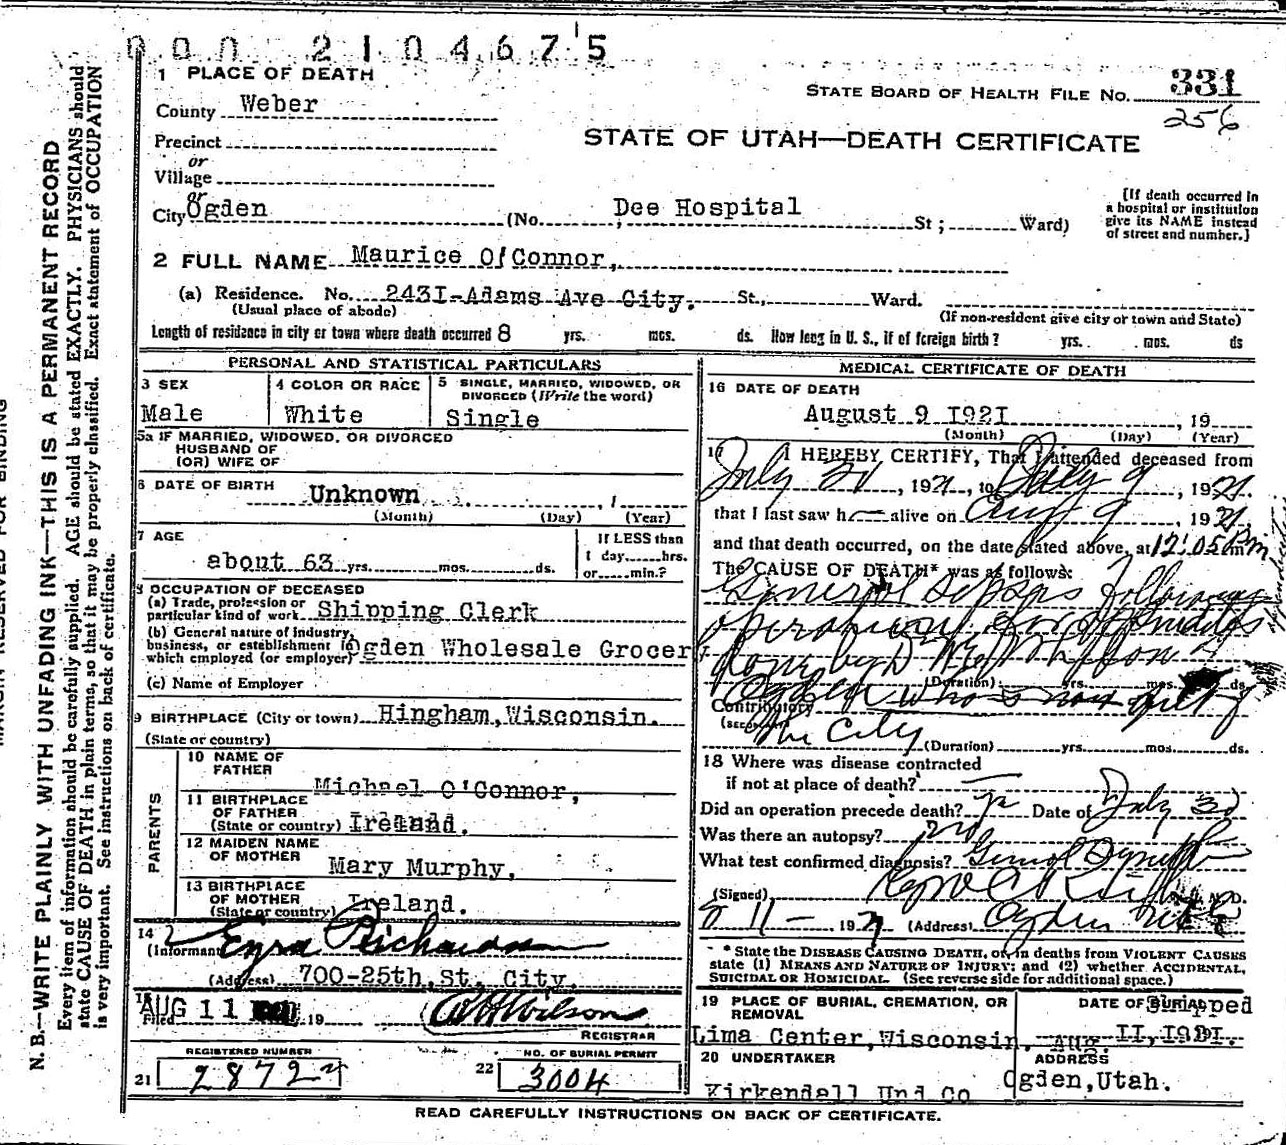 000 2104675
1 PLACE OF DEATH
STATE BOARD OF HEALTH FILE NO. 331
256
County Weber
STATE OF UTAH—DEATH CERTIFICATE
Precinct
or
Village
or
City Ogden (No. Dee Hospital St; Ward)
[If death occurred in
a hospital or institution
give its NAME instead
of street and number.]
2 FULL NAME Maurice O'Connor,
(a) Residence. No. 243I-Adams Ave City. St., Ward.
(Usual place of abode)
(If non-resident give city or town and State)
Length of residence in city or town where death occurred 8 yrs. mos. ds. How long in U. S., if of foreign birth? yrs. mos. ds
PERSONAL AND STATISTICAL PARTICULARS
3 SEX
Male
4 COLOR OR RACE
White
5 SINGLE, MARRIED, WIDOWED, OR
DIVORCED (Write the word)
Single
5a IF MARRIED, WIDOWED, OR DIVORCED
HUSBAND OF
(OR) WIFE OF
6 DATE OF BIRTH Unknown
(Month) (Day) (Year)
7 AGE
about 63 yrs. mos. ds.
If LESS than
1 day hrs.
or min.?
8 OCCUPATION OF DECEASED
(a) Trade, profession or
particular kind of work Shipping Clerk
(b) General nature of industry,
business, or establishment in
which employed (or employer) Ogden Wholesale Grocer
(c) Name of Employer
9 BIRTHPLACE (City or town) Hingham, Wisconsin.
(State or country)
PARENTS
10 NAME OF
FATHER
Michael O'Connor,
11 BIRTHPLACE
OF FATHER
(State or country) Ireland.
12 MAIDEN NAME
OF MOTHER
Mary Murphy,
13 BIRTHPLACE
OF MOTHER
(State or country) Ireland.
14
(Informant Ezra Richardson
(Address) 700-25th St, City.
15
Filed AUG 11 19 Wilson
REGISTRAR
REGISTERED NUMBER
21 2872
NO. OF BURIAL PERMIT
22 3004
MEDICAL CERTIFICATE OF DEATH
16 DATE OF DEATH
August 9 I92I, 19
(Month) (Day) (Year)
17 I HEREBY CERTIFY, That I attended deceased from
July 30, 1921, to 9, 1921.
that I last saw h alive on Aug 9, 1921.
and that death occurred, on the date stated above, at 12:05 Pm
The CAUSE OF DEATH* was as follows:
General Sepsis following
operation for
done by Dr
Ogden who is now out of
the City
(Duration) yrs. mos. ds.
Contributory
(Duration) yrs. mos. ds.
18 Where was disease contracted
if not at place of death?
Did an operation precede death? Date of July 30
Was there an autopsy? no
What test confirmed diagnosis?
(Signed) M. D.
8 11 - 1921 (Address) Ogden
* State the DISEASE CAUSING DEATH, or, in deaths from VIOLENT CAUSES
state (1) MEANS AND NATURE OF INJURY; and (2) whether ACCIDENTAL,
SUICIDAL OR HOMICIDAL. (See reverse side for additional space.)
19 PLACE OF BURIAL, CREMATION, OR
REMOVAL
Lima Center, Wisconsin,
DATE OF BURIAL Shipped
Aug. II, I92I.
20 UNDERTAKER
Kirkendall Und Co
ADDRESS
Ogden, Utah.
READ CAREFULLY INSTRUCTIONS ON BACK OF CERTIFICATE.
MARGIN RESERVED FOR BINDING
N. B.—WRITE PLAINLY WITH UNFADING INK—THIS IS A PERMANENT RECORD
Every item of information should be carefully supplied. AGE should be stated EXACTLY. PHYSICIANS should
state CAUSE OF DEATH in plain terms, so that it may be properly classified. Exact statement of OCCUPATION
is very important. See instructions on back of certificate.